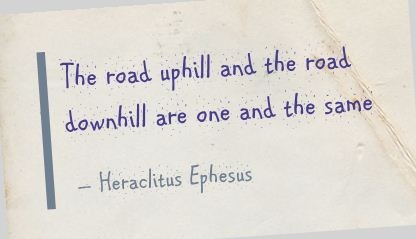 The road uphill and the road
downhill are one and the same
— Heraclitus Ephesus